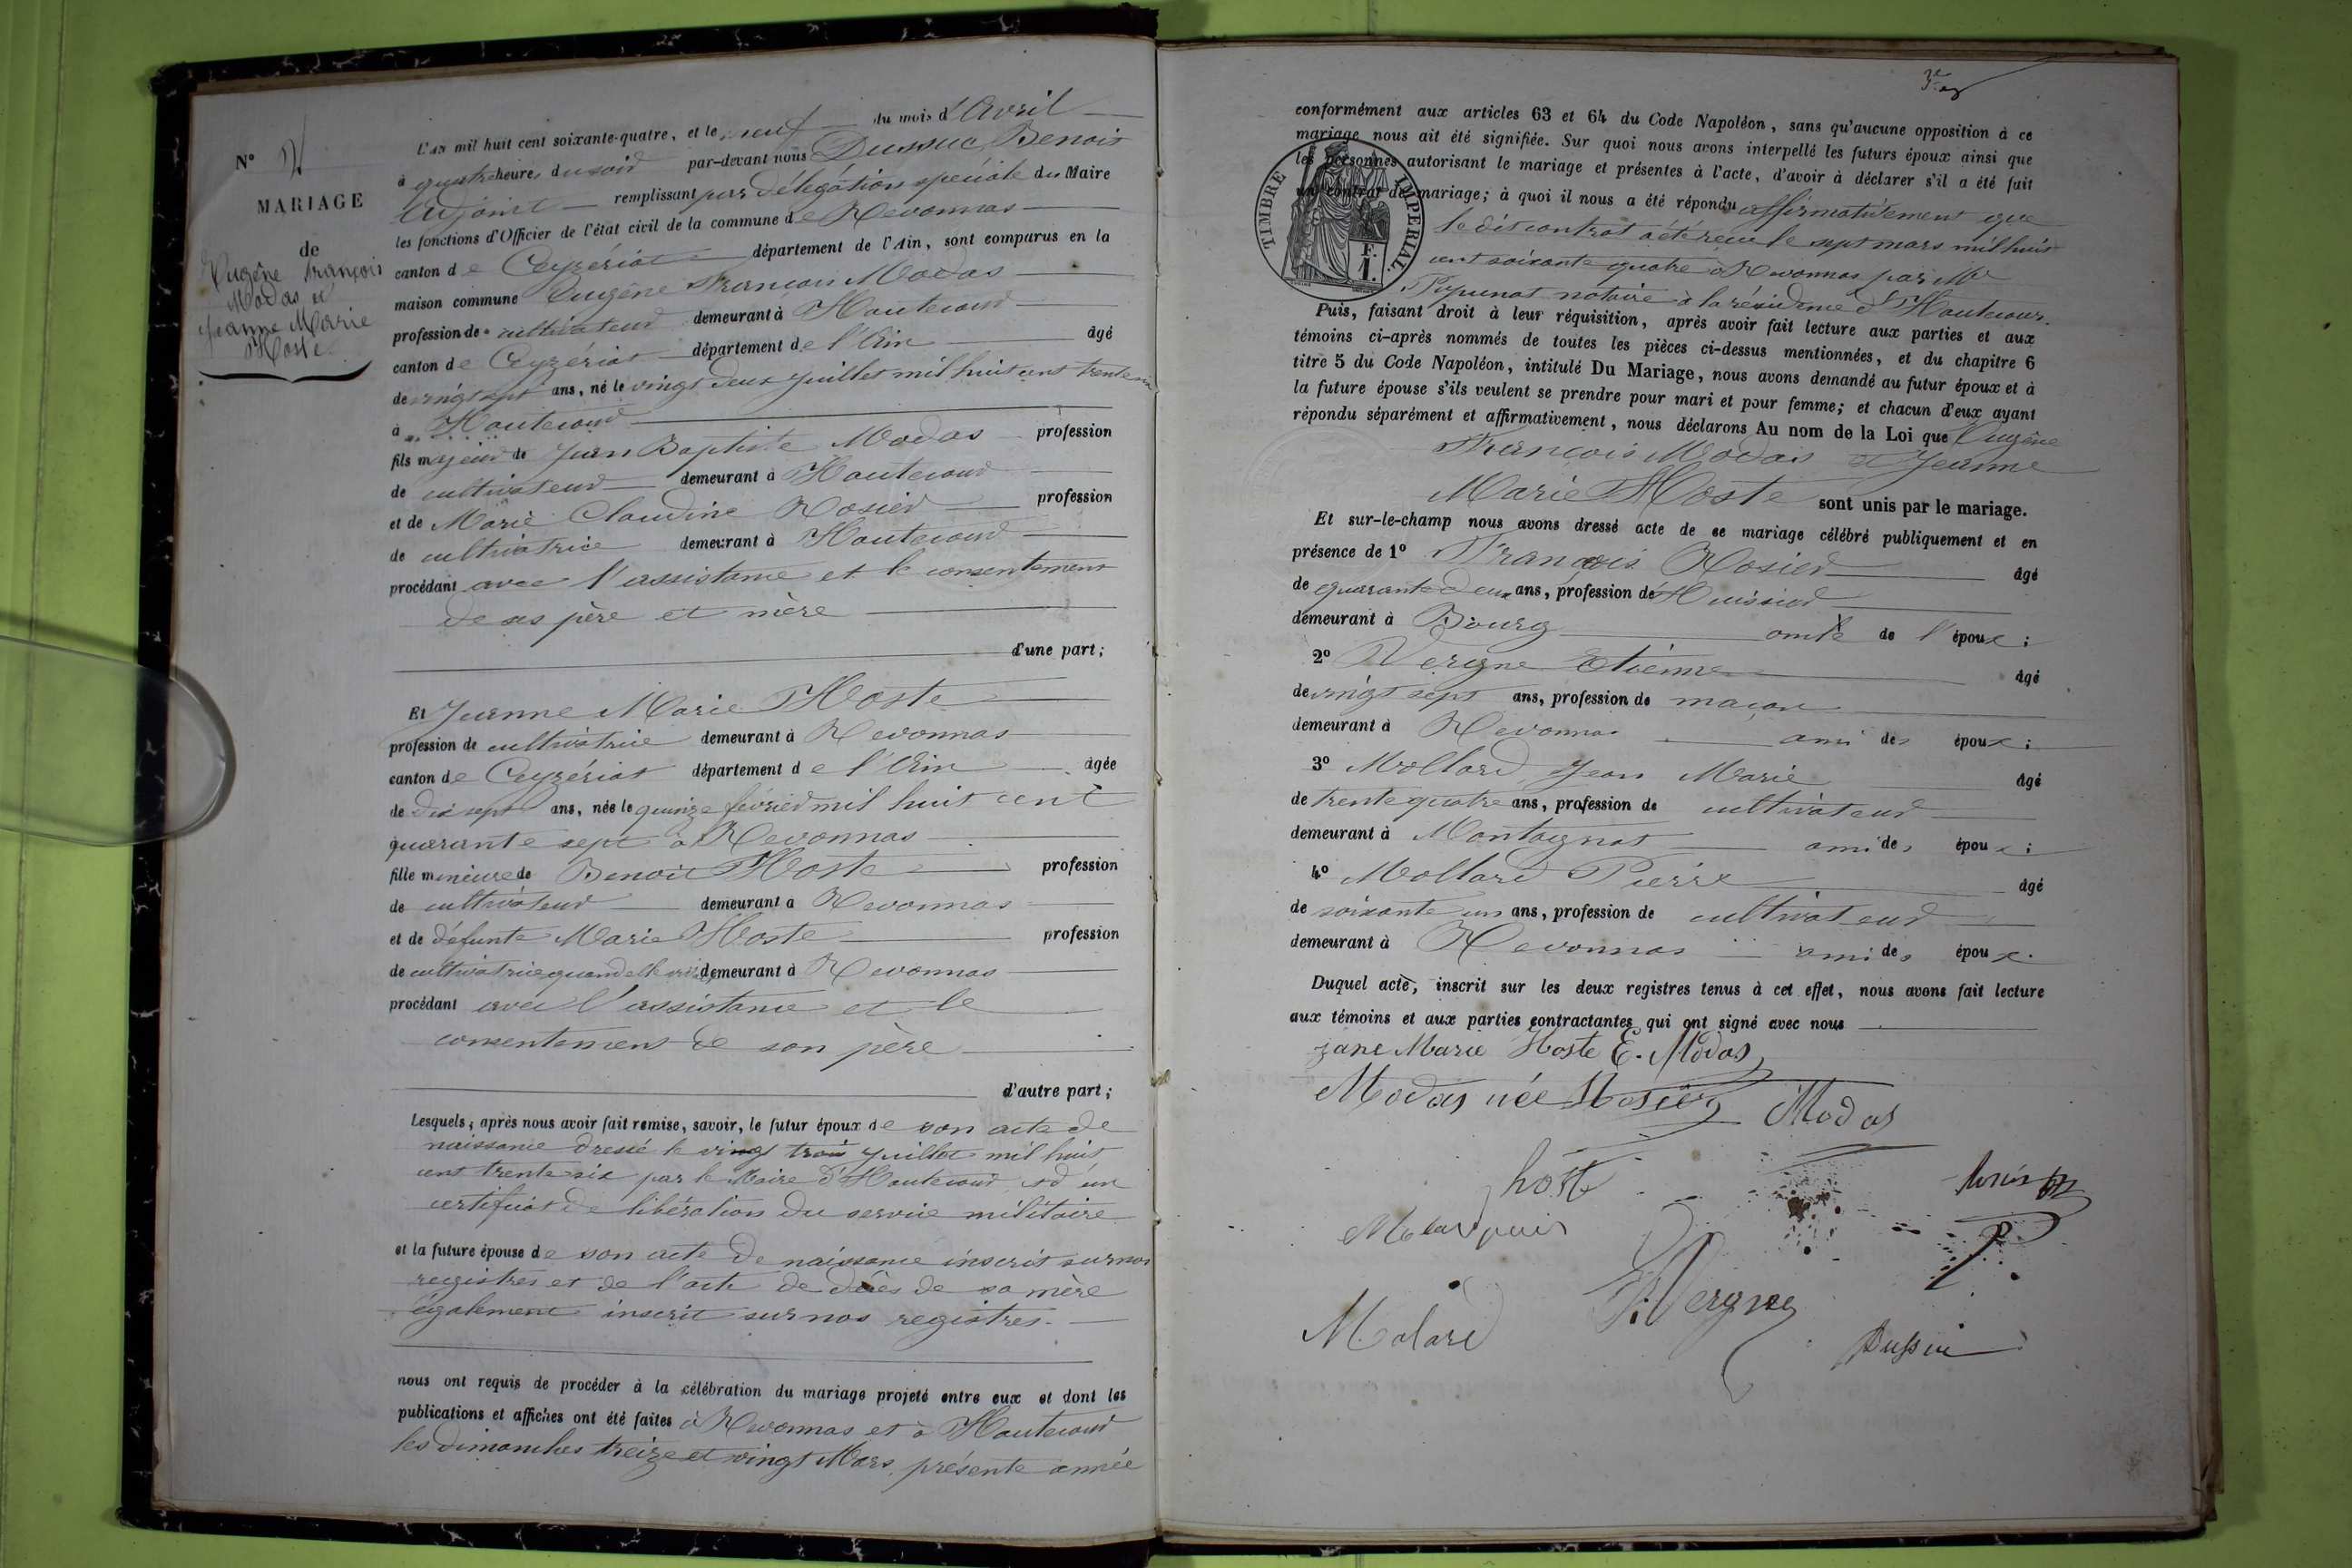 N° 2
MARIAGE
de
Eugène François
Modas et
Jeanne Marie
Hoste
L'an mil huit cent soixante-quatre, et le neuf du mois d'Avril
à quatre heures du soir par-devant nous Dussuc, Benoit
Adjoint remplissant par délégation spéciale du Maire
les fonctions d'Officier de l'état civil de la commune de Revonnas
canton de Ceyzériat département de l'Ain, sont comparus en la
maison commune Eugène François Modas
profession de cultivateur demeurant à Hautecour
canton de Ceyzériat département de l'Ain âgé
de vingt sept ans, né le vingt deux juillet mil huit cent trente six
à Hautecour
fils majeur de Jean Baptiste Modas profession
de cultivateur demeurant à Hautecour
et de Marie Claudine Rosier profession
de cultivatrice demeurant à Hautecour
procédant avec l'assistance et le consentement
de ses père et mère
d'une part;
Et Jeanne Marie Hoste
profession de cultivatrice demeurant à Revonnas
canton de Ceyzériat département de l'Ain âgée
de dix sept ans, née le quinze février mil huit cent
quarante sept à Revonnas
fille mineure de Benoit Hoste profession
de cultivateur demeurant à Revonnas
et de défunte Marie Hoste profession
de cultivatrice quand elle vivait demeurant à Revonnas
procédant avec l'assistance et le
consentement de son père
d'autre part;
Lesquels, après nous avoir fait remise, savoir, le futur époux de son acte de
naissance dressé le vingt trois juillet mil huit
cent trente six par le Maire d'Hautecour et d'un
certificat de libération du service militaire
et la future épouse de son acte de naissance inscrit sur nos
registres et de l'acte de décès de sa mère
également inscrit sur nos registres.
nous ont requis de procéder à la célébration du mariage projeté entre eux et dont les
publications et affiches ont été faites à Revonnas et à Hautecour
les dimanches treize et vingt Mars, présente année
conformément aux articles 63 et 64 du Code Napoléon, sans qu'aucune opposition à ce
mariage nous ait été signifiée. Sur quoi nous avons interpellé les futurs époux ainsi que
les personnes autorisant le mariage et présentes à l'acte, d'avoir à déclarer s'il a été fait
un contrat de mariage; à quoi il nous a été répondu affirmativement que
le dit contrat a été reçu le sept mars mil huit
cent soixante quatre à Revonnas par Me
notaire à la résidence d'Hautecour.
TIMBRE IMPERIAL.
F.
1.
Puis, faisant droit à leur réquisition, après avoir fait lecture aux parties et aux
témoins ci-après nommés de toutes les pièces ci-dessus mentionnées, et du chapitre 6
titre 5 du Code Napoléon, intitulé Du Mariage, nous avons demandé au futur époux et à
la future épouse s'ils veulent se prendre pour mari et pour femme; et chacun d'eux ayant
répondu séparément et affirmativement, nous déclarons Au nom de la Loi que Eugène
François Modas et Jeanne
Marie Hoste sont unis par le mariage.
Et sur-le-champ nous avons dressé acte de ce mariage célébré publiquement et en
présence de 1° François Rosier âgé
de quarante deux ans, profession de Huissier
demeurant à Bourg de l'époux;
2° Vergne Etienne âgé
de vingt sept ans, profession de maçon
demeurant à Revonnas ami des époux;
3° Mollard Jean Marie âgé
de trente quatre ans, profession de cultivateur
demeurant à Montagnat ami des époux;
4° Mollard Pierre âgé
de soixante un ans, profession de cultivateur
demeurant à Revonnas ami des époux.
Duquel acte, inscrit sur les deux registres tenus à cet effet, nous avons fait lecture
aux témoins et aux parties contractantes qui ont signé avec nous
jane Marie Hoste E. Modas
Modas née Rosier Modas
hoste
Molard
Vergne
Dussuc